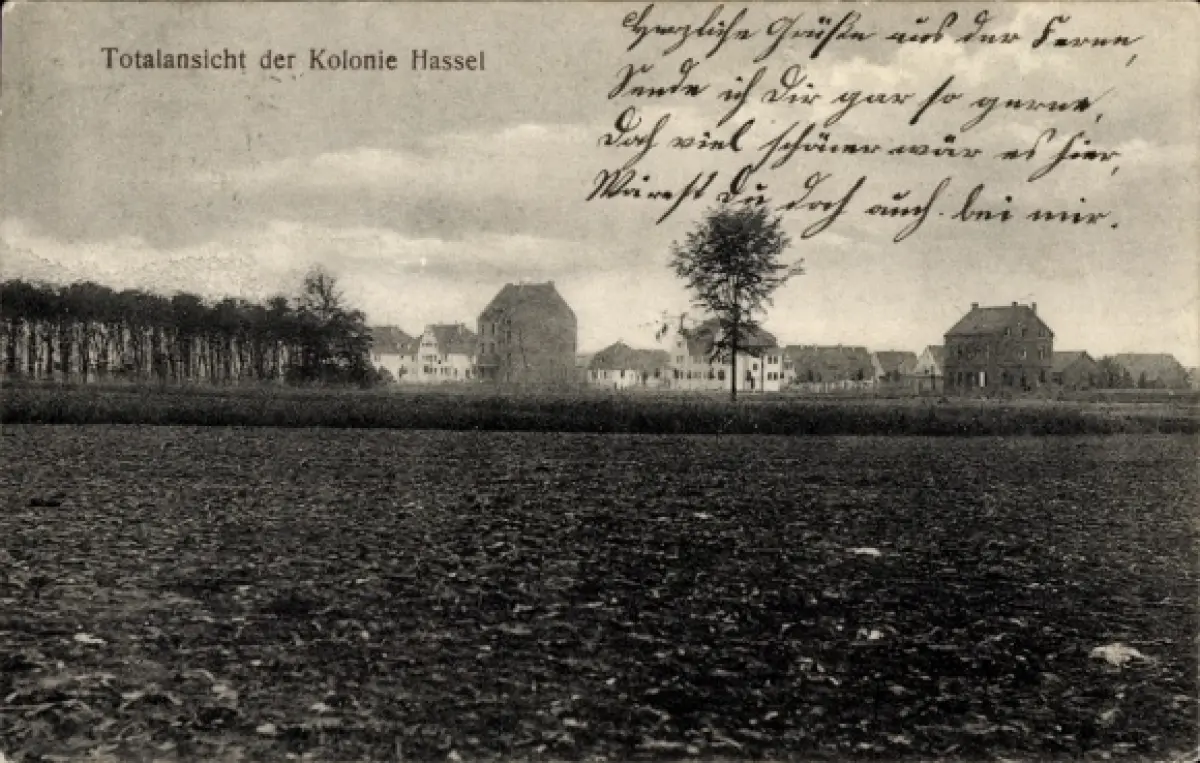 Totalansicht der Kolonie Hassel
Herzliche Grüße aus der Ferne,
Sende ich Dir gar so gerne,
Doch viel schöner wär es hier,
Wärest Du doch auch bei mir.